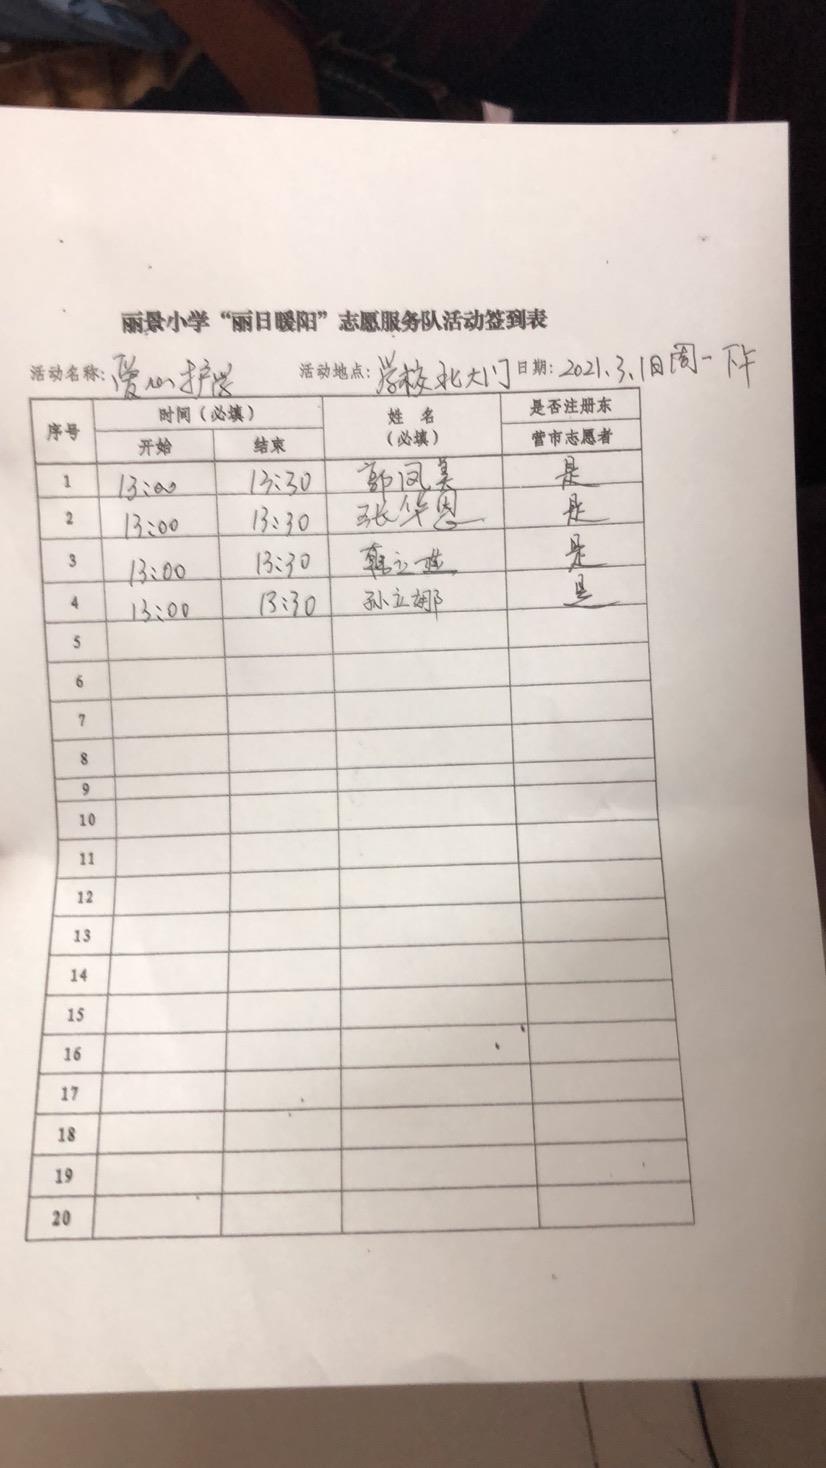 丽景小学“丽日暖阳”志愿服务队活动签到表
活动名称：爱心护学 活动地点：学校北大门 日期：2021.3.1日周一下午
序号 时间（必填） 姓名（必填） 是否注册东营市志愿者
开始 结束
1 13:00 13:30 郭凤美 是
2 13:00 13:30 张华恩 是
3 13:00 13:30 韩立 是
4 13:00 13:30 孙立娜 是
5
6
7
8
9
10
11
12
13
14
15
16
17
18
19
20